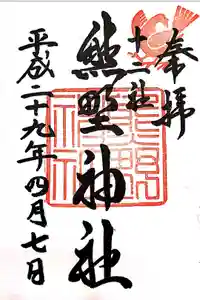 奉拝
十二社
熊野神社
平成二十九年四月七日